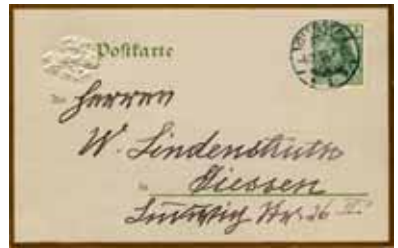 Postkarte
An Herren
W. Lindenstruth
in Giessen
Ludwig Str. 26 III